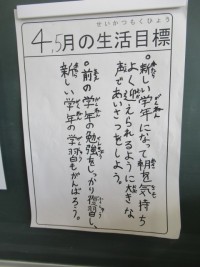 せいかつもくひょう
4,5月の生活目標
•新しい学年になって朝を気持ち
よく迎えられるように大きな
声であいさつをしよう。
•前の学年の勉強をしっかり復習し、
新しい学年の学習もがんばろう。